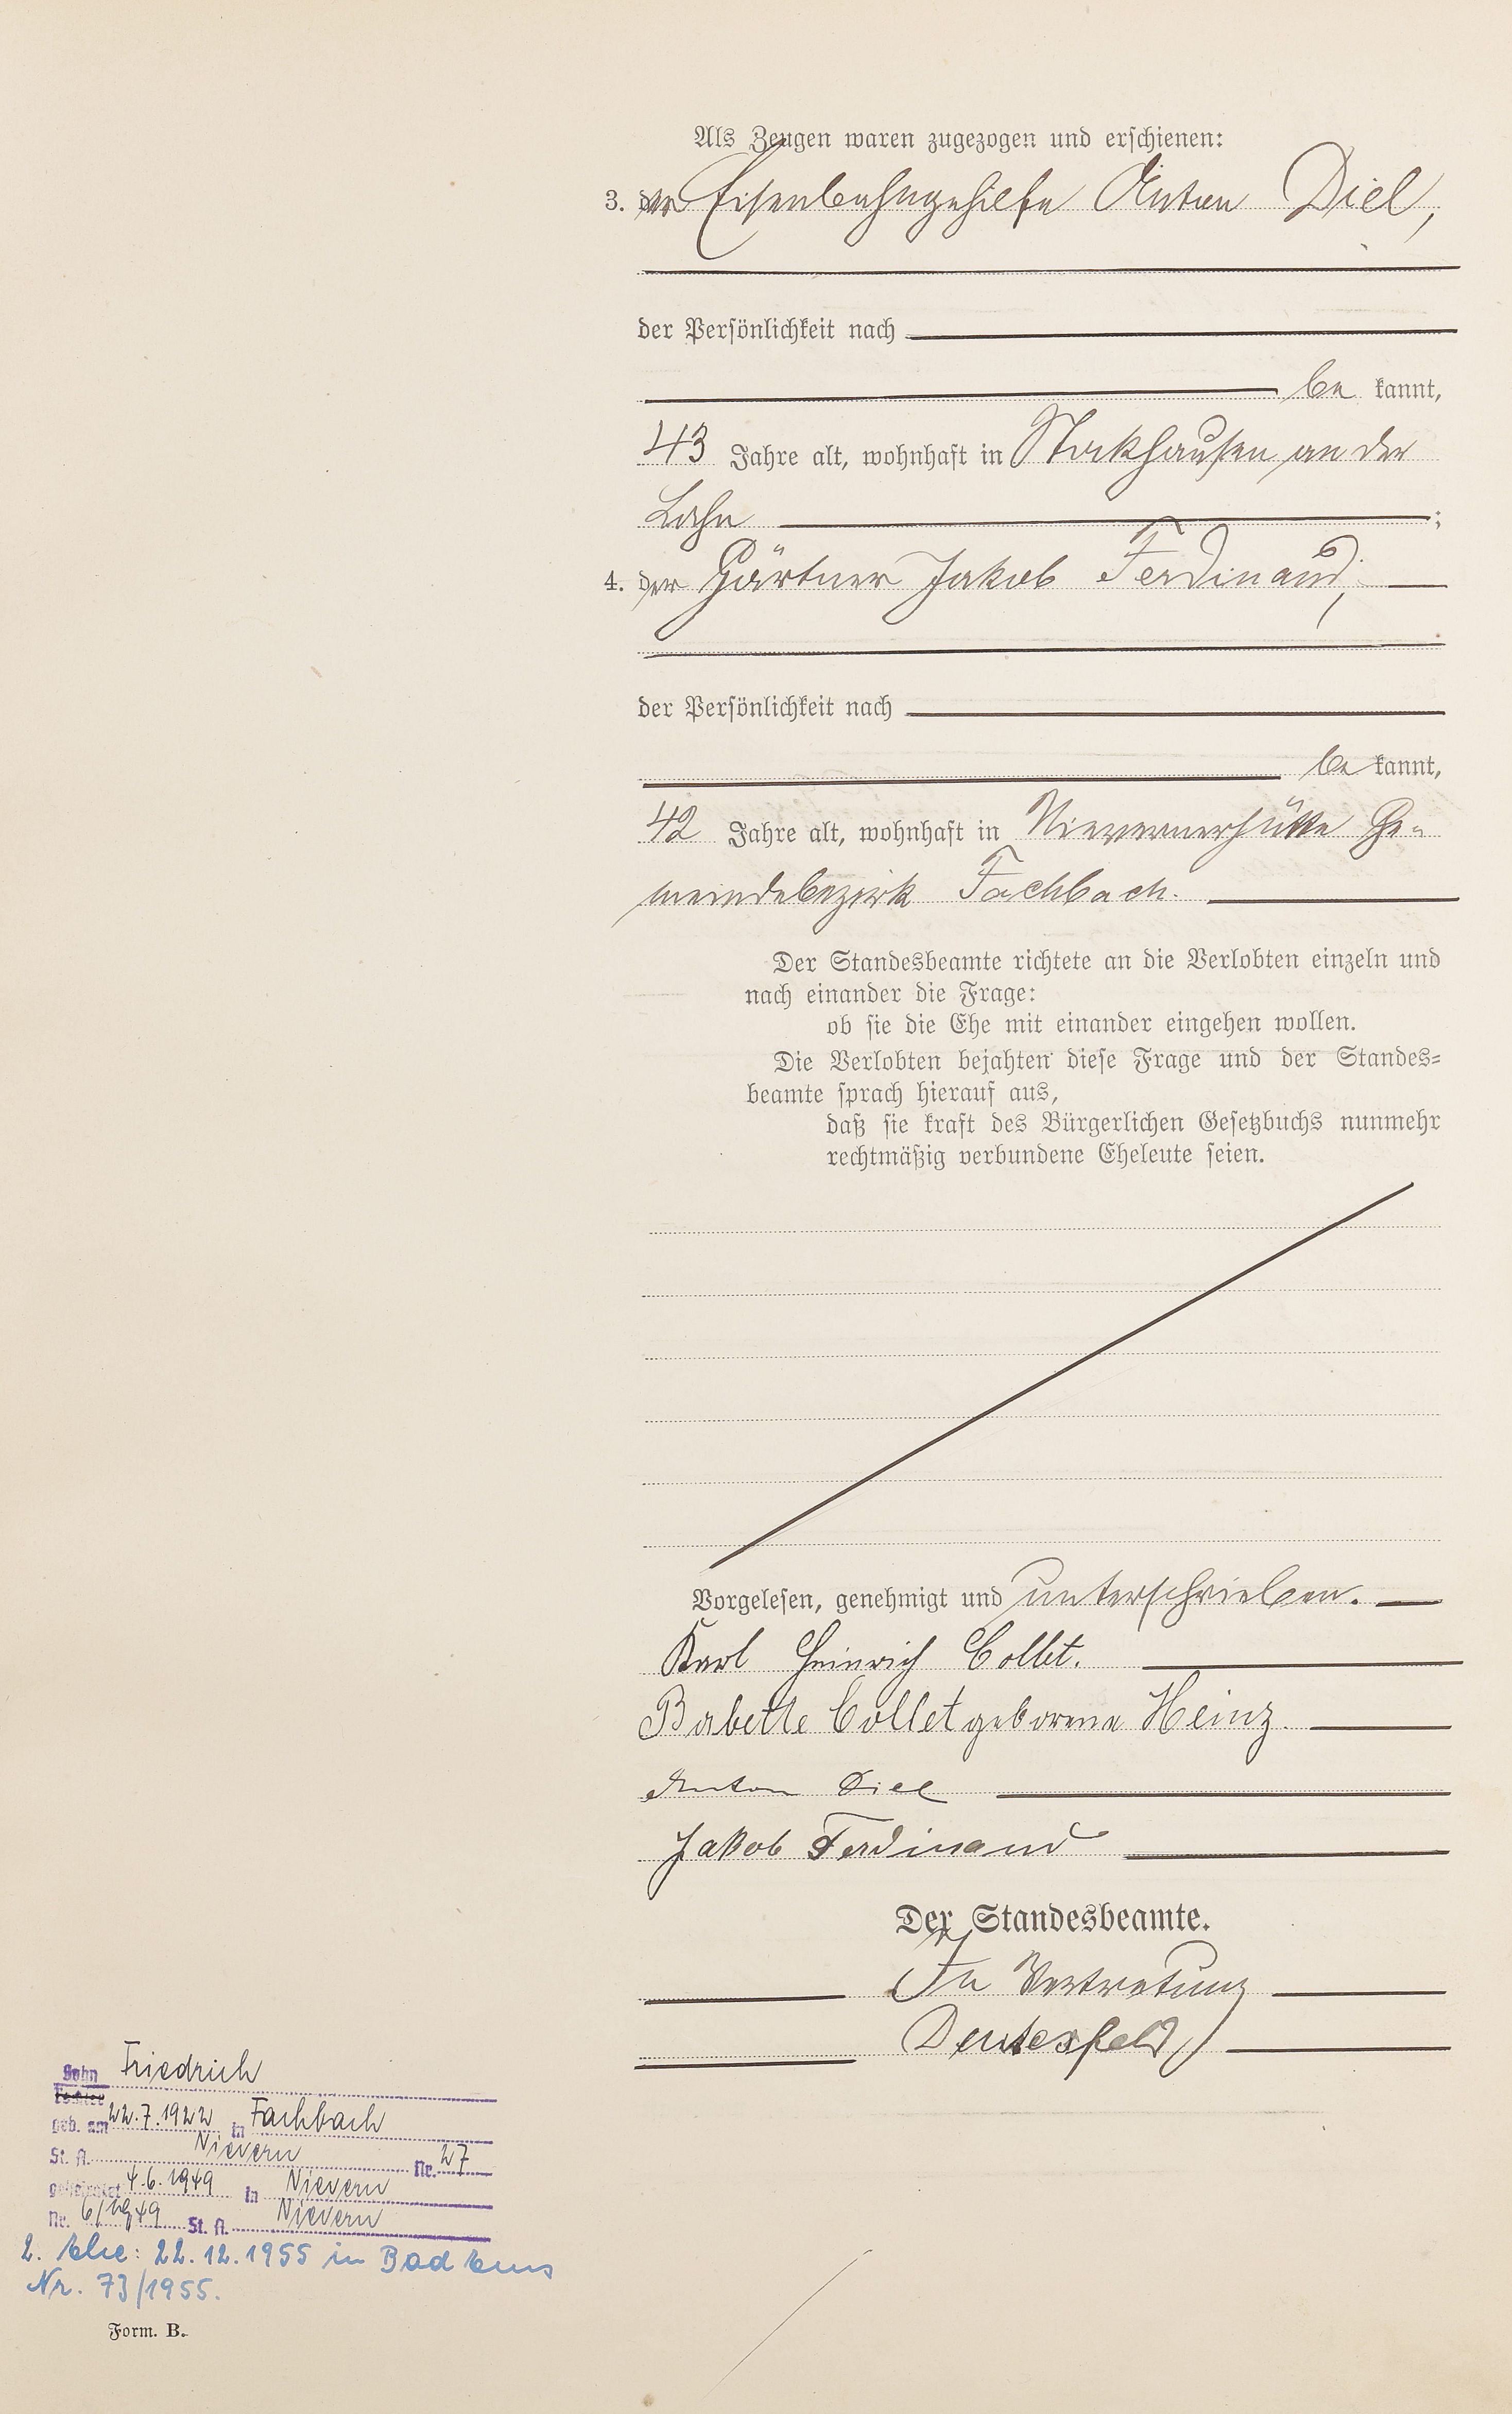 Als Zeugen waren zugezogen und erschienen:
3. der Eisenbahngehilfe Anton Diel,
der Persönlichkeit nach
be kannt,
43 Jahre alt, wohnhaft in Stockhausen an der
Lahn ;
4. der Gärtner Jakob Ferdinand,
der Persönlichkeit nach
be kannt,
42 Jahre alt, wohnhaft in Nievernerhütte Ge-
meindebezirk Fachbach.
Der Standesbeamte richtete an die Verlobten einzeln und
nach einander die Frage:
ob sie die Ehe mit einander eingehen wollen.
Die Verlobten bejahten diese Frage und der Standes-
beamte sprach hierauf aus,
daß sie kraft des Bürgerlichen Gesetzbuchs nunmehr
rechtmäßig verbundene Eheleute seien.
Vorgelesen, genehmigt und unterschrieben.
Karl Heinrich Collet.
Babette Collet geborene Heinz.
Anton Diel
Jakob Ferdinand
Der Standesbeamte.
In Vertretung
Deutesfeld
Sohn Friedrich
Tochter
geb. am 22.7.1922 in Fachbach
St. A. Nievern Nr. 27
geheiratet 4.6.1949 in Nievern
Nr. 6/1949 St. A. Nievern
2. Ehe: 22.12.1955 in Bad Ems
Nr. 73/1955.
Form. B.